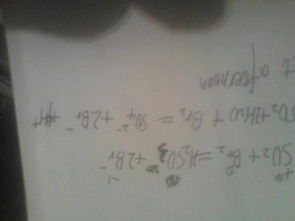 +4 0 -1
SO₂ + Br₂ = H₂SO₃ + 2Br⁻
SO₂ + 2H₂O + Br₂ = SO₄²⁻ + 2Br⁻
afternoon